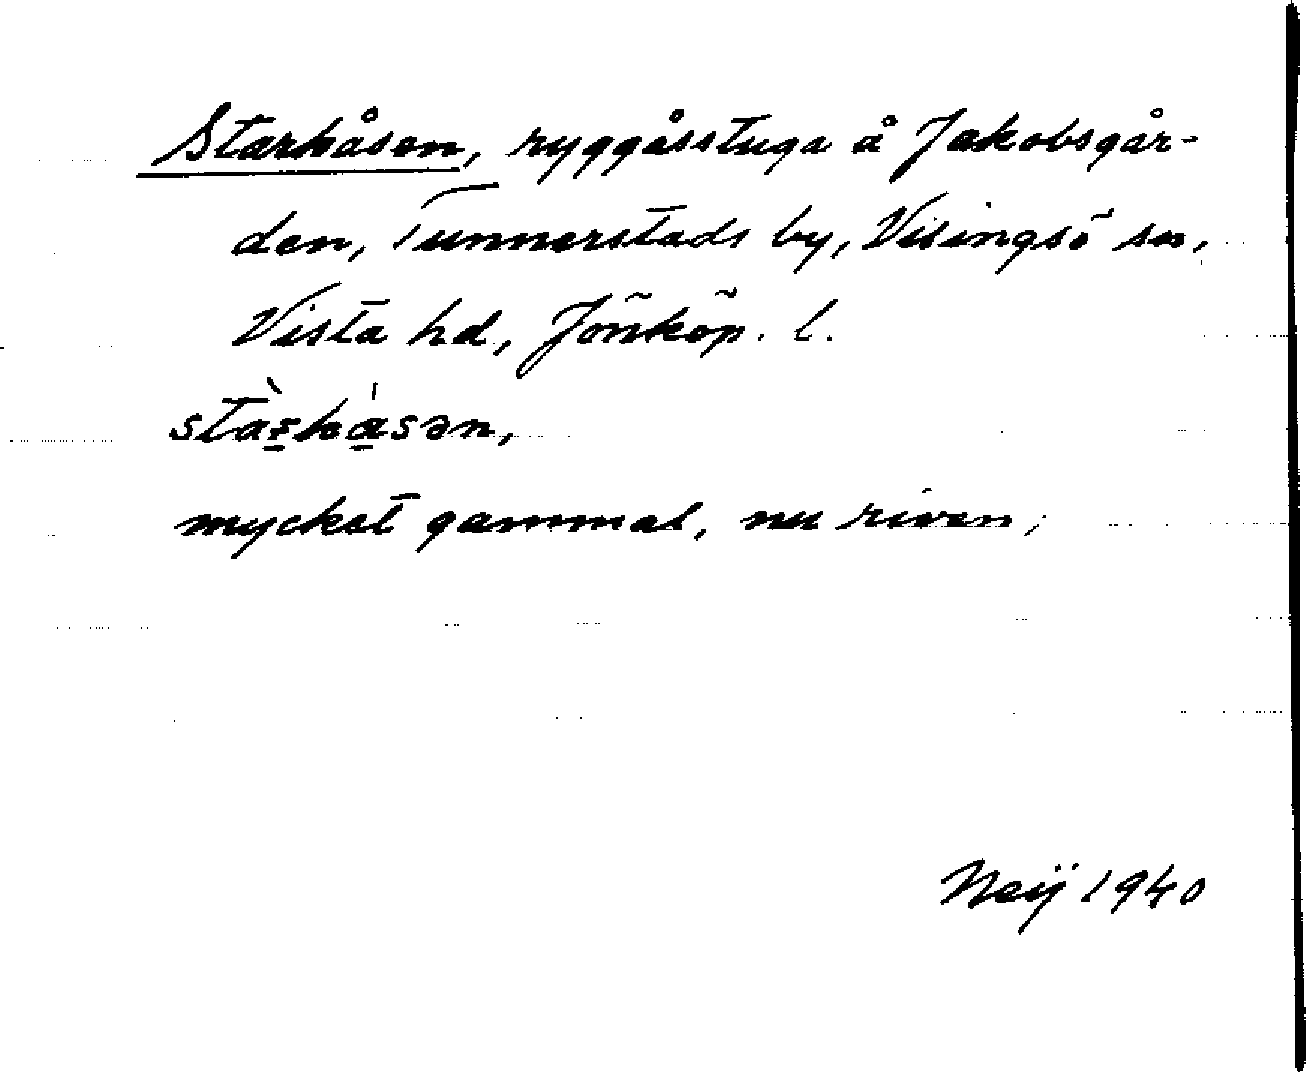 Starhåsen, ryggåsstuga å Jakobsgår-
den, Tunnerstads by, Visingsö sn,
Vista hd, Jönköp. l.
stàrhásən,
mycket gammal, nu riven;
Neij 1940